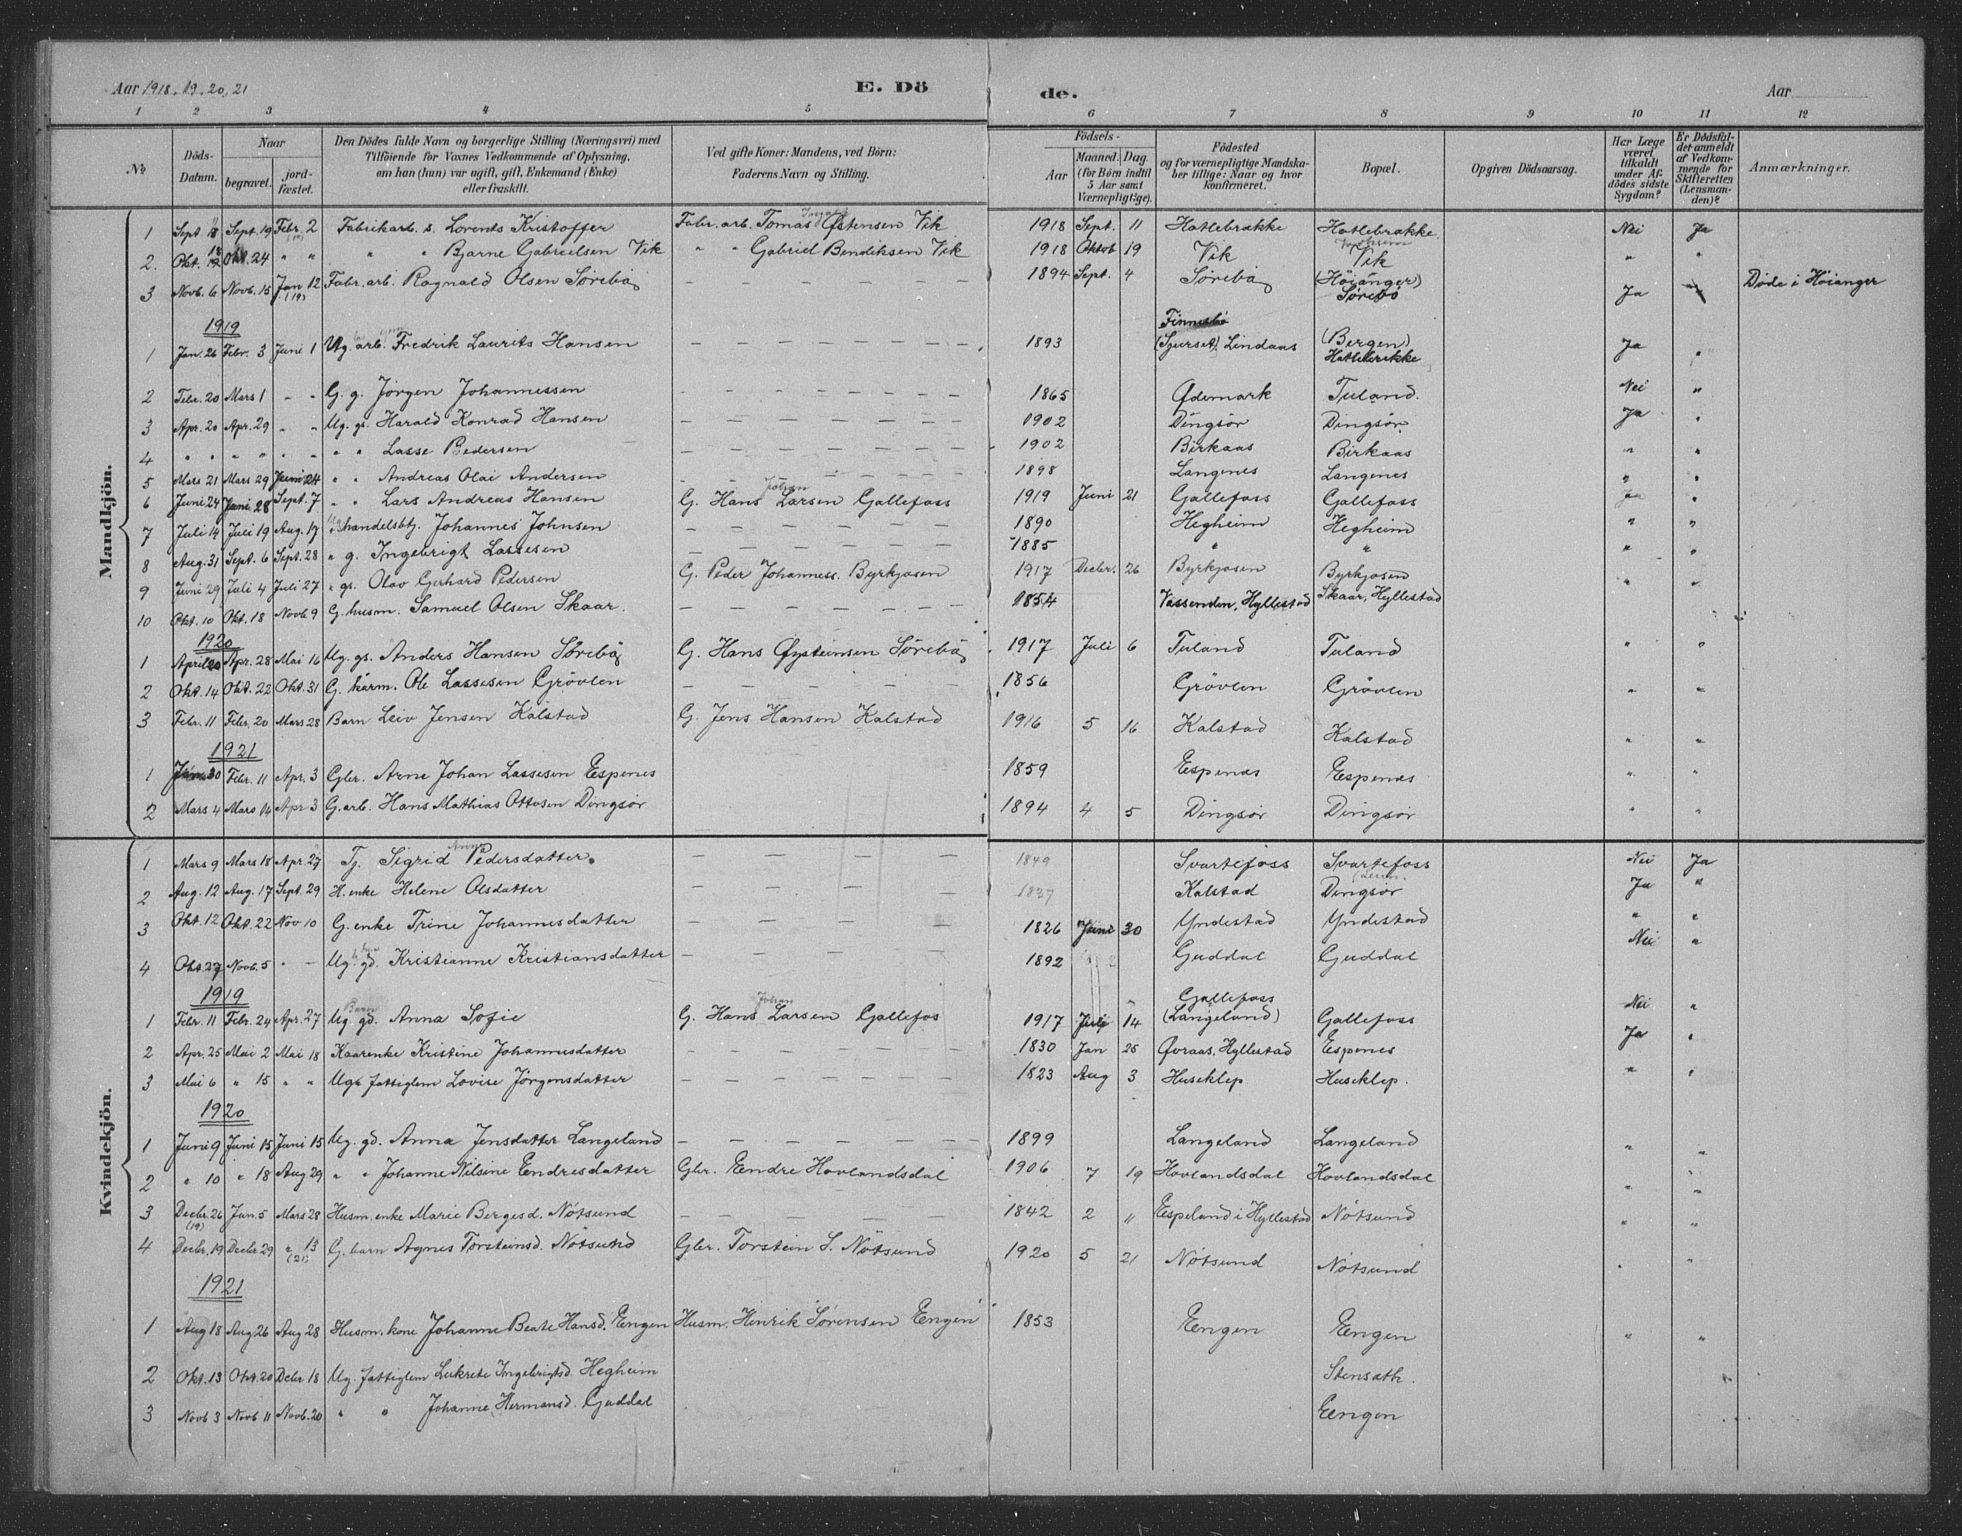 Aar 1918. 19. 20. 21 E. Dö de. Aar
1 2 3 4 5 6 7 8 9 10 11 12
No
Döds-Datum.
Naar
begravet.
jord-fæstet.
Den Dödes fulde Navn og borgerlige Stilling (Næringsvei) med
Tilföiende for Voxnes Vedkommende af Oplysning,
om han (hun) var ugift, gift, Enkemand (Enke)
eller fraskilt.
Ved gifte Koner: Mandens, ved Börn:
Faderens Navn og Stilling.
Födsels-
Aar
Maaned. Dag.
(for Börn indtil
5 Aar samt
Værnepligtige).
Födested
og for værnepligtige Mandska-
ber tillige: Naar og hvor
konfirmeret.
Bopæl.
Opgiven Dödsaarsag.
Har Læge
været
tilkaldt
under Af-
dödes sidste
Sygdom?
Er Dödsfal-
det anmeldt
af Vedkom-
mende for
Skifteretten
(Lensman-
den)?
Anmærkninger.
Mandkjön.
1 Sept Sept. 19 Febr. 2 (19) Fabrikarb. s. Lorents Kristoffer Fabr. arb. Tomas Østensen Vik 1918 Sept. 11 Hatlebrække Hatlebrække Nei Ja
2. Okt. 12 Okt. 24 " " " " Bjarne Gabrielsen Vik " " Gabriel Bendiksen Vik 1918 Oktob 19 Vik Vik " "
3 Novb. 6 Novb. 15 Jan 12 (19) Fabr. arb. Ragnald Olsen Sørebø 1894 Sept. 4 Sørebø (Höianger) Sørebø Ja " Døde i Höianger
1919
1 Jan. 26 Febr. 3 Juni 1 Ug. arb. Fredrik Laurits Hansen – 1893 Finnebø (Sjurset) Lindaas (Bergen) Hatlebrække Ja "
2 Febr. 20 Mars 1 " " G. g. Jørgen Johannessen – 1865 Ødemark Tuland. Nei "
3 Apr. 20 Apr. 29 " " Ug. gs. Harald Konrad Hansen – 1902 Dingsør Dingsør. Ja "
4 " " " " " " " " Lasse Pedersen – 1902 Birkaas Birkaas " "
5 Mars 21 Mars 29 Juni 24 " " Andreas Olai Andersen – 1898 Langenes Langenes " "
6 Juni 24 Juni 28 Sept. 7 " " Lars Andreas Hansen G. Hans Johan Larsen Gallefoss 1919 Juni 21 Gallefoss Gallefoss Ja "
7 Juli 14 Juli 19 Aug. 17 handelsbtj. Johannes Johnsen – 1890 Hegheim Hegheim " "
8 Aug. 31 Sept. 6 Sept. 28 " g. Ingebrigt Lassesen – 1885 " " " "
9 Juni 29 Juli 4 Juli 27 " gs. Olav Gerhard Pedersen G. Peder Johanness. Byrkjosen 1917 Decbr. 26 Byrkjosen Byrkjosen " "
10 Okt. 10 Okt. 18 Novb 9 G. husm. Samuel Olsen Skaar. – 1854 Vassenden, Hyllestad Skaar, Hyllestad
1920
1 April 20 Apr. 28 Mai 16 Ug. gs. Anders Hansen Sørebø G. Hans Øysteinsen Sørebø 1917 Juli 6 Tuland Tuland " "
2 Okt. 14 Okt. 22 Okt. 31 G. kårm. Ole Lassesen Grövlen – 1856 Grövlen Grövlen " "
3 Febr. 11 Febr. 20 Mars 28 Barn Leiv Jensen Kalstad G. Jens Hansen Kalstad 1916 5 16 Kalstad Kalstad " "
1921
1 Jan. 30 Febr. 11 Apr. 3 Gbr. Arne Johan Lassesen Espenes 1859 Espenæs Espenæs " "
2 Mars 4 Mars 14 Apr 3 G. arb. Hans Mathias Ottosen Dingsør 1894 4 5 Dingsør Dingsør " "
Kvindekjön.
1 Mars 9 Mars 18 Apr. 27 Tj. Sigrid Anna Pedersdatter. – 1849 Svartefoss Svartefoss Nei Ja
2 Aug. 12 Aug. 17 Sept. 29 H. enke Helene Olsdatter – 1837 Kalstad Dingsør Ja "
3 Okt. 12 Okt. 22 Nov 10 G. enke Trine Johannesdatter – 1826 Juni 30 Yndestad Yndestad " "
4 Okt. 27 Novb. 5 " – Ug. gd. Kristianne Kristiansdatter – 1892 Guddal Guddal Nei "
1919
1 Febr. 11 Febr. 24 Apr. 27 Ug. Barn gd. Anna Sofie G. Hans Johan Larsen Gallefos 1917 Juli 14 Gallefoss (Langeland) Gallefoss Nei "
2 Apr. 25 Mai 2 Mai 18 Kaarenke Kristine Johannesdatter – 1830 Jan 25 Øvraas, Hyllestad Espenes Ja "
3 Mai 6 " 15 " " Ugk fattiglem Lovise Jørgensdatter – 1823 Aug 3 Huseklep Huseklep. " "
1920
1 Juni 9 Juni 15 Juni 15 Ug. gd. Anna Jensdatter Langeland – 1899 Langeland Langeland " "
2 " 10 " 18 Aug 29 " " Johanne Nilsine Endresdatter Gbr. Endre Hovlandsdal 1906 7 19 Hovlandsdal Hovlandsdal " "
3 Decbr. 26 (19) Jan. 5 Mars 28 Husm. enke Marie Bergesd. Nötsund – 1842 2 " Espeland i Hyllestad Nötsund " "
4 Decbr. 19 Decbr 29 " 13 (21) G. barn Agnes Torsteinsd. Nötsund Gbr. Torstein S. Nötsund 1920 5 21 Nötsund Nötsund " "
1921
1 Aug 18 Aug 26 Aug 28 Husm. kone Johanne Beate Hansd. Engen Husm. Henrik Sørensen Engen 1853 Engen Engen " "
2 Okt. 13 Okt. 20 Decbr 18 Ug. fattiglem Lukrete Ingebrigtsd. Hegheim Stensæth.
3 Novb 3 Novb 11 Novb. 20 " " Johanne Hermansd. Guddal Engen